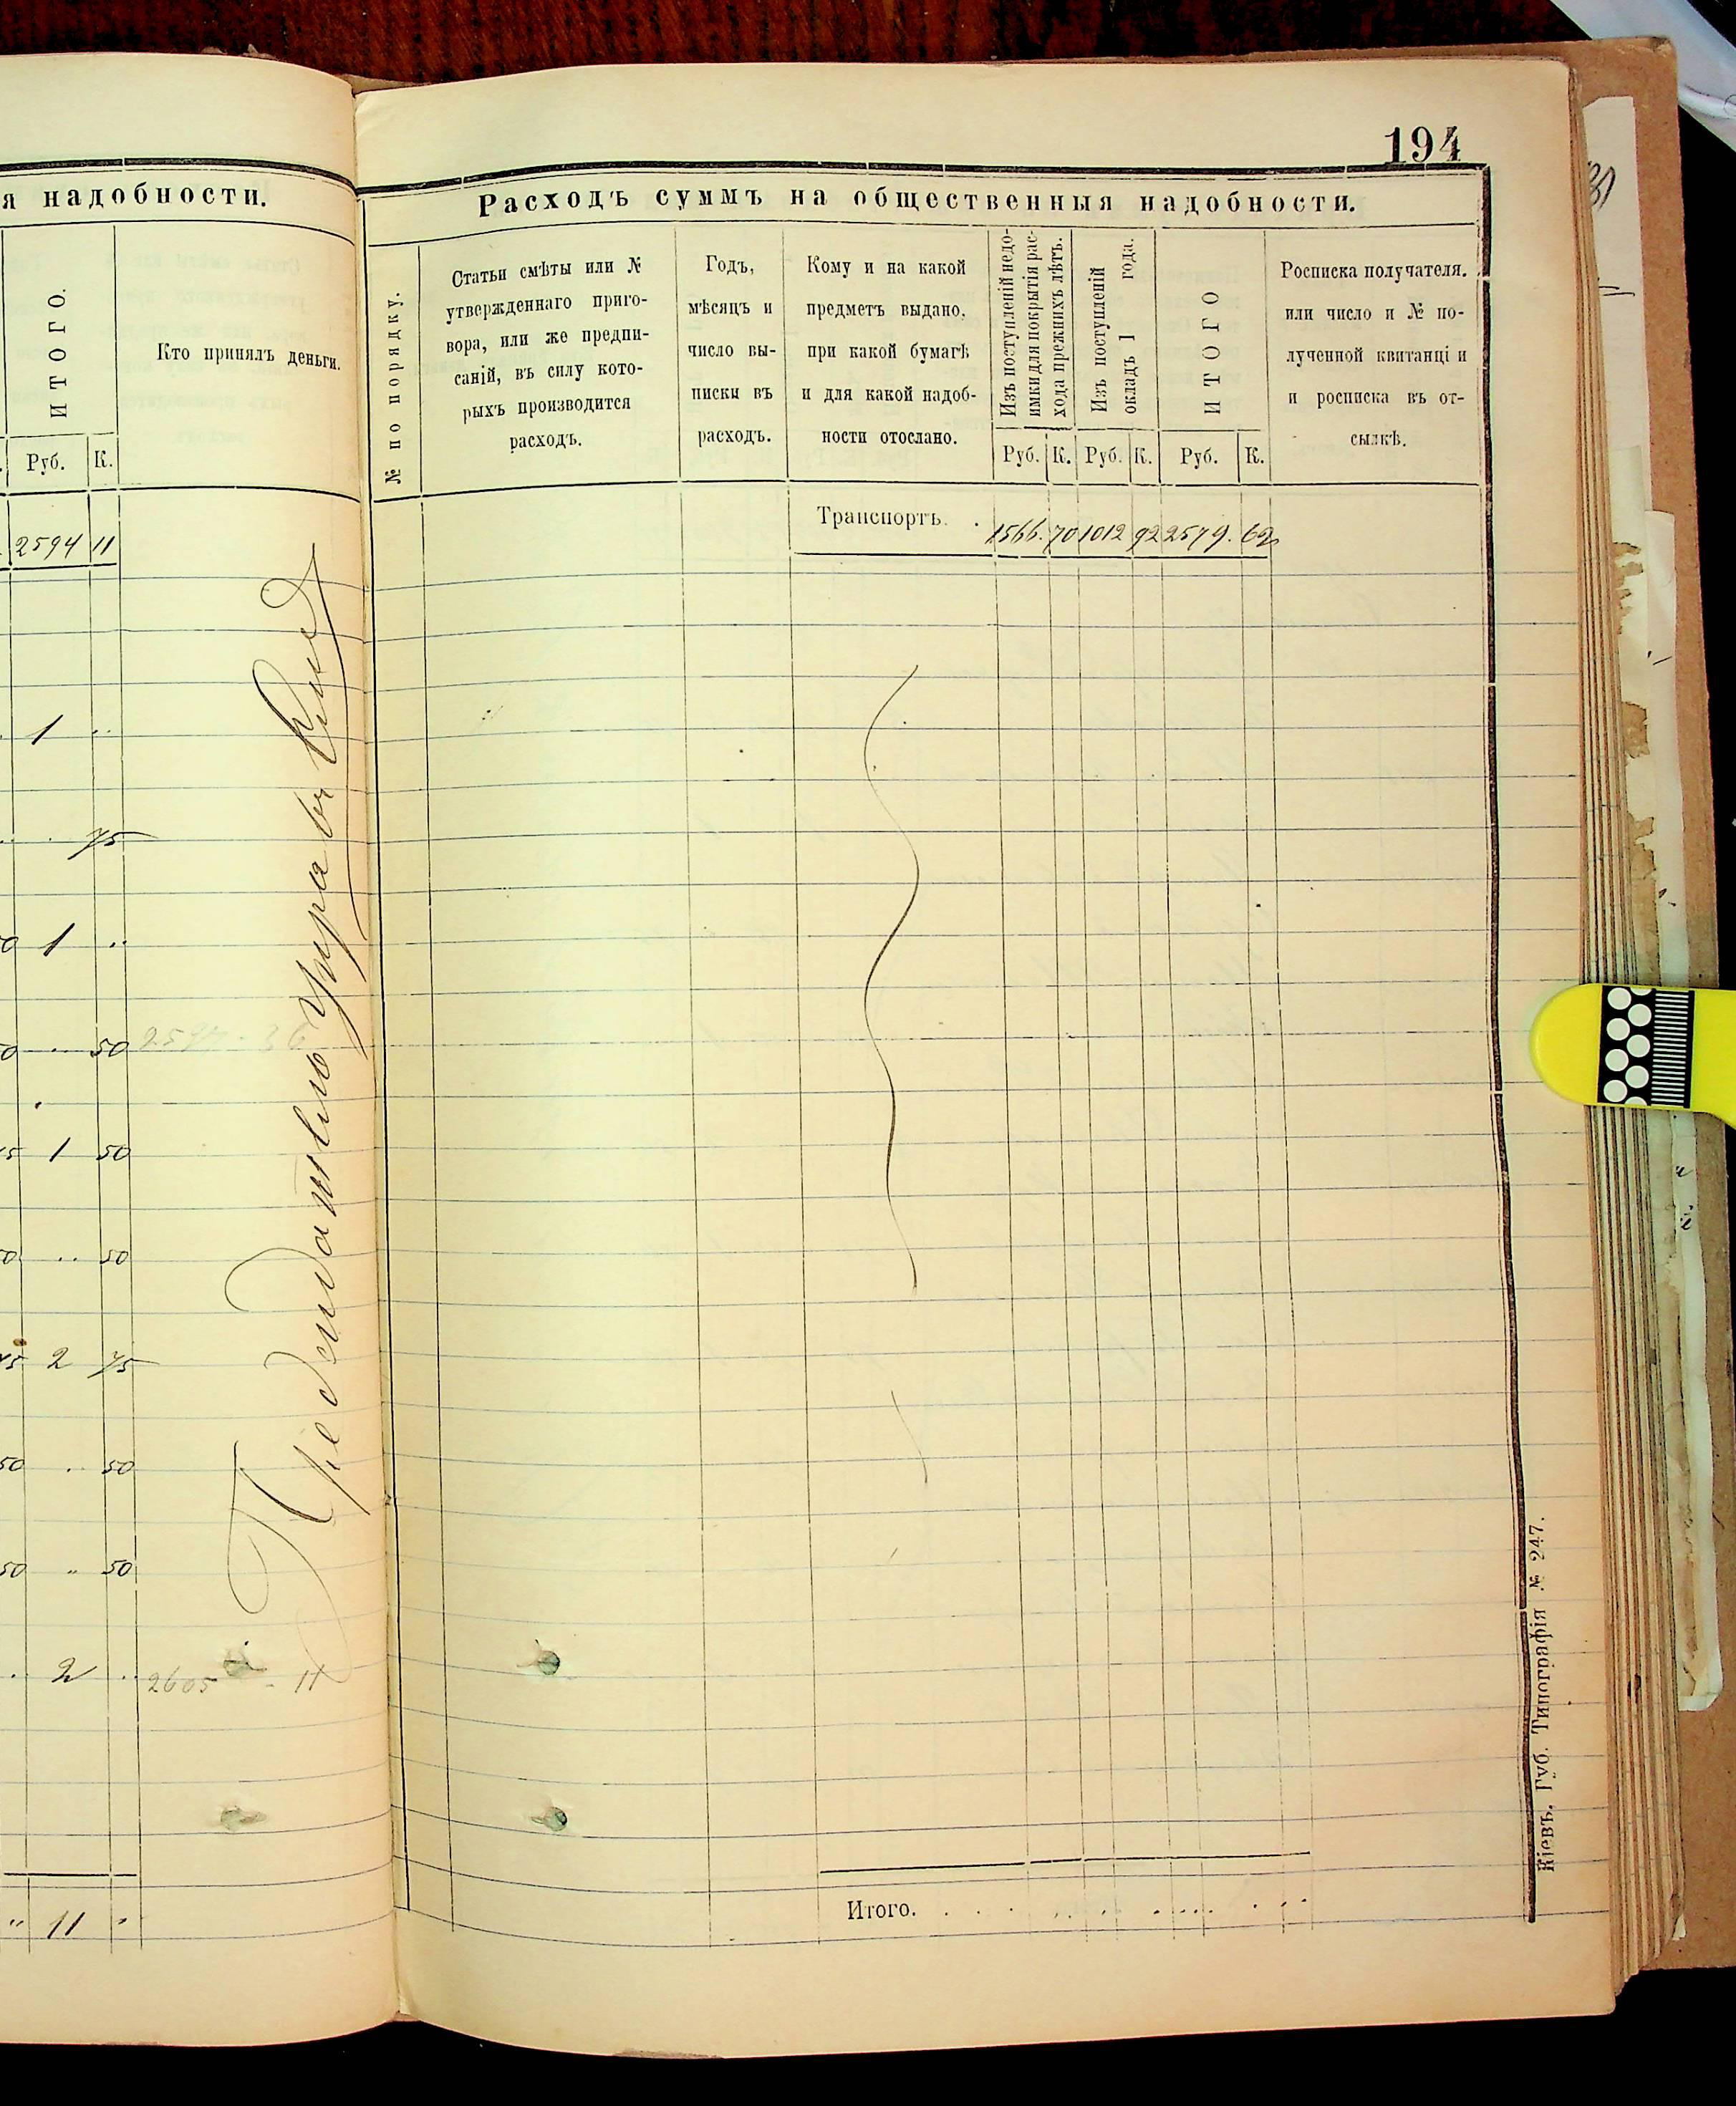 194
я надобности.
ИТОГО.
Кто принялъ деньги.
Руб. К.
2594 11
1 ..
75
1 ..
50
1 50
50
2 75
50 . 50
50 " 50
2 ..
2605 - 11
" 11 "
Расходъ суммъ на общественныя надобности.
№ по порядку.
Статьи смѣты или №
утвержденнаго приго-
вора, или же предпи-
саній, въ силу кото-
рыхъ производится
расходъ.
Годъ,
мѣсяцъ и
число вы-
писки въ
расходъ.
Кому и на какой
предметъ выдано,
при какой бумагѣ
и для какой надоб-
ности отослано.
Изъ поступленій недо-
имки для покрытія рас-
хода прежнихъ лѣтъ.
Изъ поступленій
окладъ 1 года.
ИТОГО
Росписка получателя.
или число и № по-
лученной квитанці и
и росписка въ от-
сылкѣ.
Руб. К. Руб. К. Руб. К.
Транспортъ. . 1566. 70 1012 92 2579. 62
Итого. . . .
Кіевъ. Губ. Типографія № 247.